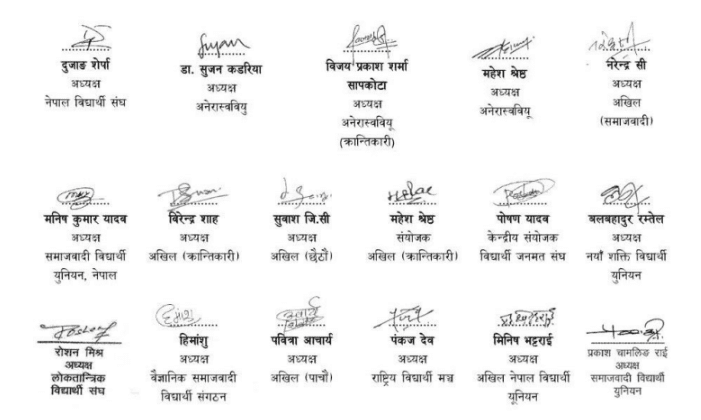 दुजाङ शेर्पा
अध्यक्ष
नेपाल विद्यार्थी संघ
डा. सुजन कडरिया
अध्यक्ष
अनेरास्ववियु
विजय प्रकाश शर्मा
सापकोटा
अध्यक्ष
अनेरास्ववियू
(क्रान्तिकारी)
महेश श्रेष्ठ
अध्यक्ष
अनेरास्ववियू
नरेन्द्र सी
अध्यक्ष
अखिल
(समाजवादी)
मनिष कुमार यादव
अध्यक्ष
समाजवादी विद्यार्थी
युनियन, नेपाल
बिरेन्द्र शाह
अध्यक्ष
अखिल (क्रान्तिकारी)
सुवाश जि.सी
अध्यक्ष
अखिल (छैठौं)
महेश श्रेष्ठ
संयोजक
अखिल (क्रान्तिकारी)
पोषण यादव
केन्द्रीय संयोजक
विद्यार्थी जनमत संघ
बलबहादुर रम्तेल
अध्यक्ष
नयाँ शक्ति विद्यार्थी
युनियन
रोशन मिश्र
अध्यक्ष
लोकतान्त्रिक
विद्यार्थी संघ
हिमांशु
अध्यक्ष
वैज्ञानिक समाजवादी
विद्यार्थी संगठन
पवित्रा आचार्य
अध्यक्ष
अखिल (पाचौं)
पंकज देव
अध्यक्ष
राष्ट्रिय विद्यार्थी मञ्च
मिनिष भट्टराई
अध्यक्ष
अखिल नेपाल विद्यार्थी
यूनियन
प्रकाश चामलिङ राई
अध्यक्ष
समाजवादी विद्यार्थी
युनियन